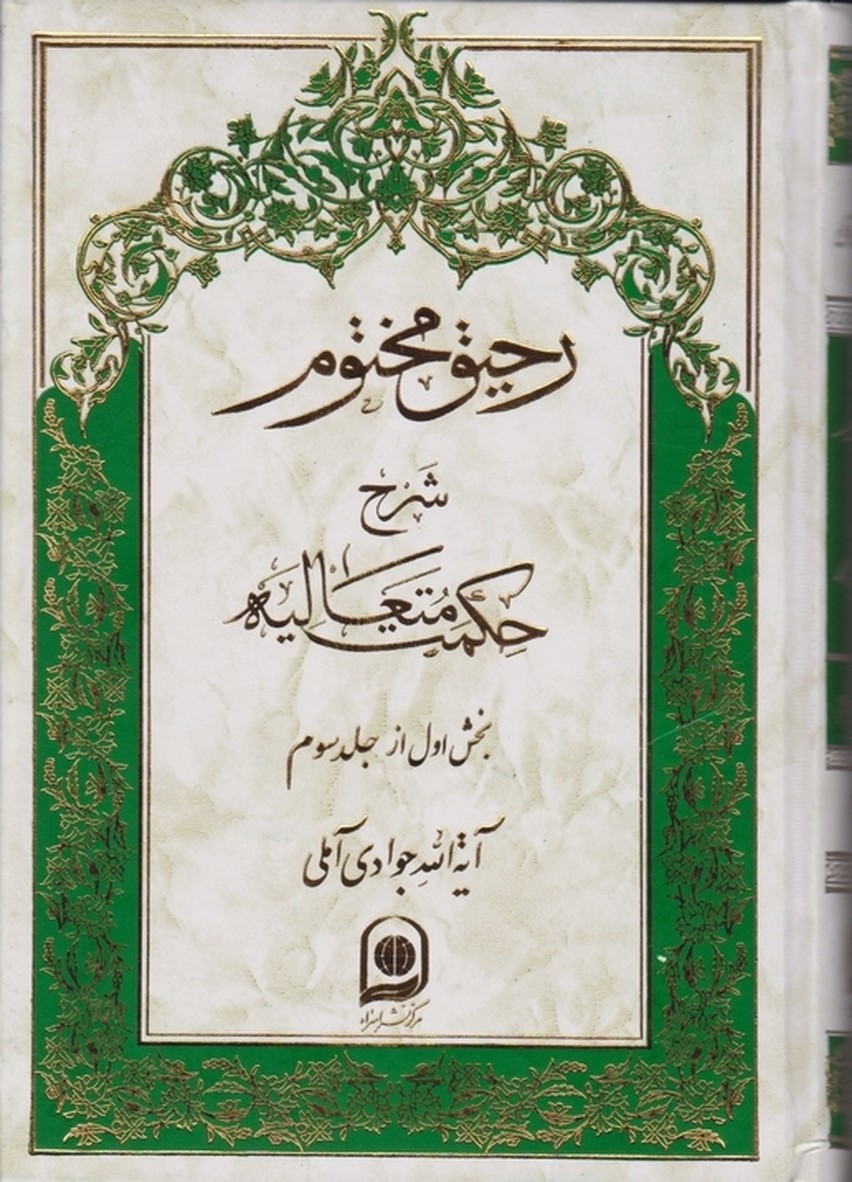 رحیق مختوم
شرح
حکمت متعالیه
بخش اول از جلد سوم
آیة الله جوادی آملی
مرکز نشر اسراء